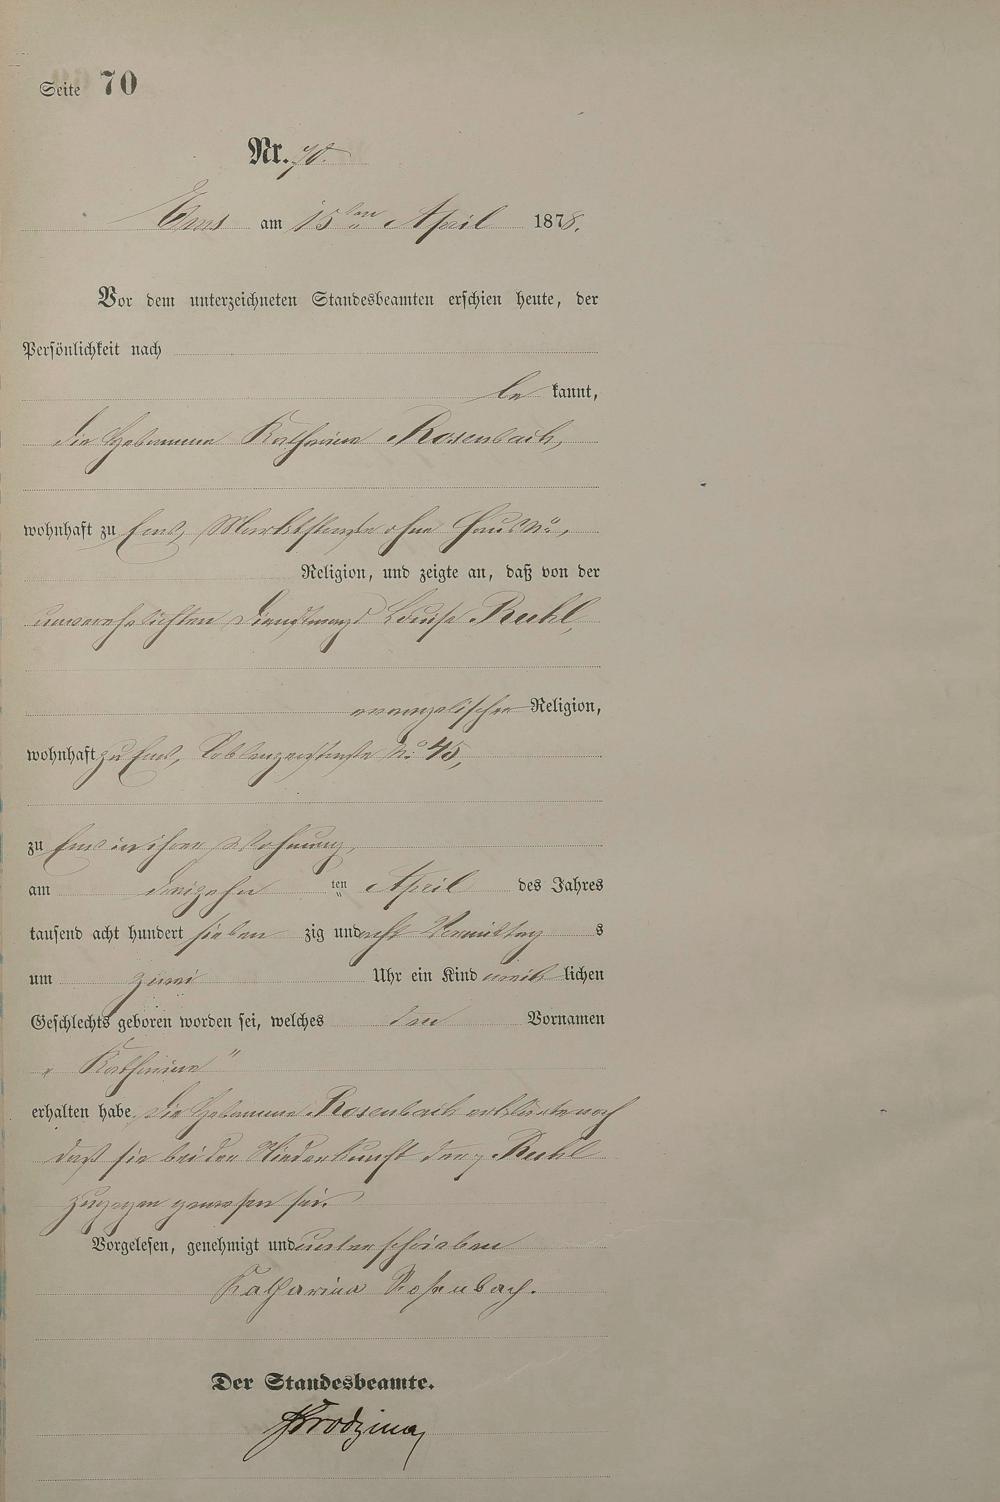 Seite 70
Nr. 70.
Ems am 15ten April 1878.
Vor dem unterzeichneten Standesbeamten erschien heute, der
Persönlichkeit nach
be kannt,
die Hebamme Katharine Rosenbach,
wohnhaft zu Ems, Marktstraße ohne Haus No,
Religion, und zeigte an, daß von der
unverehelichten Dienstmagd Louise Ruhl,
evangelischer Religion,
wohnhaft zu Ems, Coblenzerstraße No 45,
zu Ems in ihrer Wohnung,
am dreizehn ten April des Jahres
tausend acht hundert sieben zig und acht Vormittag s
um zwei Uhr ein Kind weib lichen
Geschlechts geboren worden sei, welches den Vornamen
„Katharine"
erhalten habe. Die Hebamme Rosenbach erklärte noch
daß sie bei der Niederkunft der Ruhl
zugegen gewesen sei.
Vorgelesen, genehmigt und unterschrieben
Katharina Rosenbach.
Der Standesbeamte.